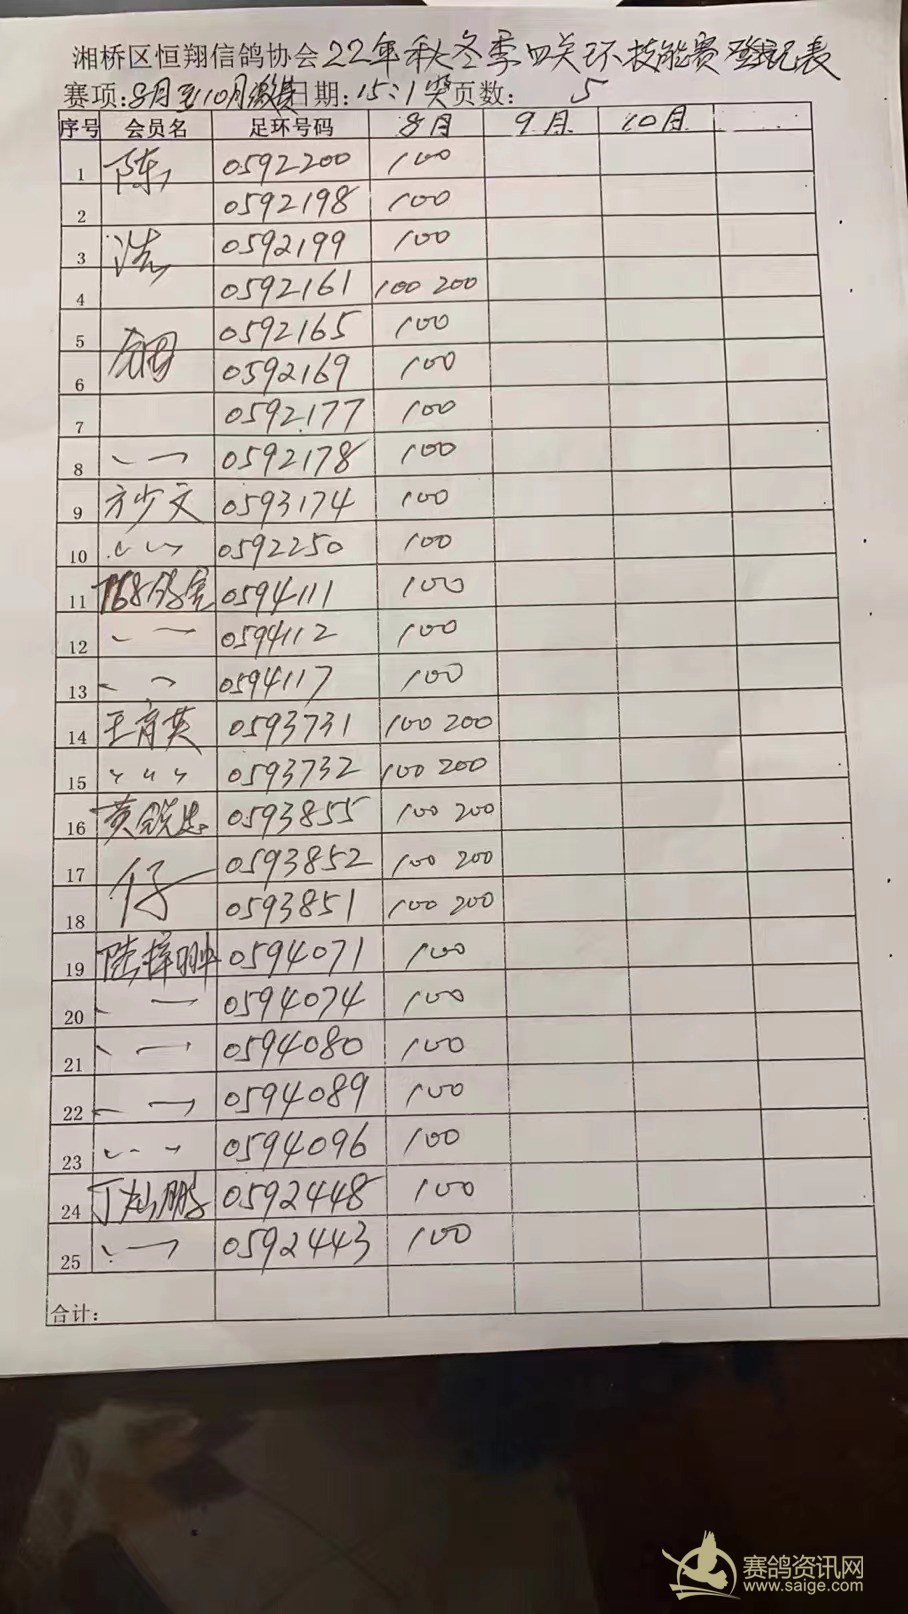 湘桥区恒翔信鸽协会22年秋冬季四关环技能赛登记表
赛项:8月至10月缴费日期:15:1奖页数: 5
序号 会员名 足环号码 8月 9月 10月
1 陈 0592200 100
2 0592198 100
3 浩 0592199 100
4 0592161 100 200
5 0592165 100
6 0592169 100
7 0592177 100
8 0592178 100
9 方少文 0593174 100
10 0592250 100
11 168鸽舍 0594111 100
12 0594112 100
13 0594117 100
14 王育英 0593731 100 200
15 〃 〃 〃 0593732 100 200
16 黄 0593855 100 200
17 仔 0593852 100 200
18 0593851 100 200
19 陆梓翀 0594071 100
20 0594074 100
21 0594080 100
22 0594089 100
23 0594096 100
24 丁灿鹏 0592448 100
25 0592443 100
合计:
赛鸽资讯网
www.saige.com